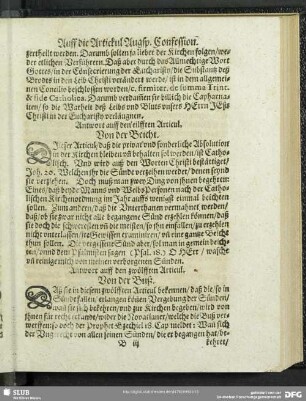 Auff die Artickul Augsp. Confession.
zertheilt werden. Darumb sollen sie lieber der Kirchen folgen/ we-
der etlichen Verführern. Daß aber durch das Allmechtige Wort
Gottes/ in der Consecrierung der Eucharisti/ die Substantz des
Brodes in den Leib Christi verändert werde/ ist in dem allgemei-
nen Concilio beschlossen worden/ c. firmiter. de summa Trinit.
& fide Catholica. Darumb verdammen sie billich die Capharnai-
ten/ so die Warheit deß Leibs vnd Bluts vnsers HErrn JEsu
Christi in der Eucharistia verläugnen.
Antwort auff den eilfften Articul.
Von der Beicht.
Dieser Articul/ daß die privat vnd sonderliche Absolution
in der Kirchen bleiben vñ behalten sol werden/ ist Catho-
lisch. Vnd wird auß den Worten Christi bestättiget/
Joh. 20. Welchen jhr die Sünde vergeben werdet/ denen seynd
sie verziehen. Doch muß man zwey Ding von jhnen begehren
Eines/ daß beyde Manns vnd Weibs Personen nach der Catho-
lischen Kirchenordnung im Jahr auffs wenigst einmal beichten
sollen. Zum andern/ daß die Vnterthanen vermahnet werden/
daß/ ob sie zwar nicht alle begangene Sünd erzehlen können/ daß
sie doch die
nicht vnterlassen/
beichten. Die vergessene Sünd aber/ sol man in gemein beich-
ten/ vnd dem Psalmisten sagen (Psal. 18.) O HErr/ wasche
vñ reinige mich von meinen verborgenen Sünden.
Antwort auff den zwölfften Articul.
Von der Buß.
Daß sie in diesem zwölfften Articul bekennen/ daß die/ so in
Sünde fallen/ erlangen können Vergebung der Sünden/
wañ sie sich bekehren/ vnd zur Kirchen begeben/ wird von
jhnen für recht erkandt/ wider die Novatianer/ welche die Buß ver-
werffen/ so doch der Prophet Ezechiel 18. Cap. meldet: Wañ sich
der Vngerecht von allen seinen Sünden/ die er begangen hat/ be-
B iij
kehret/
SLUB